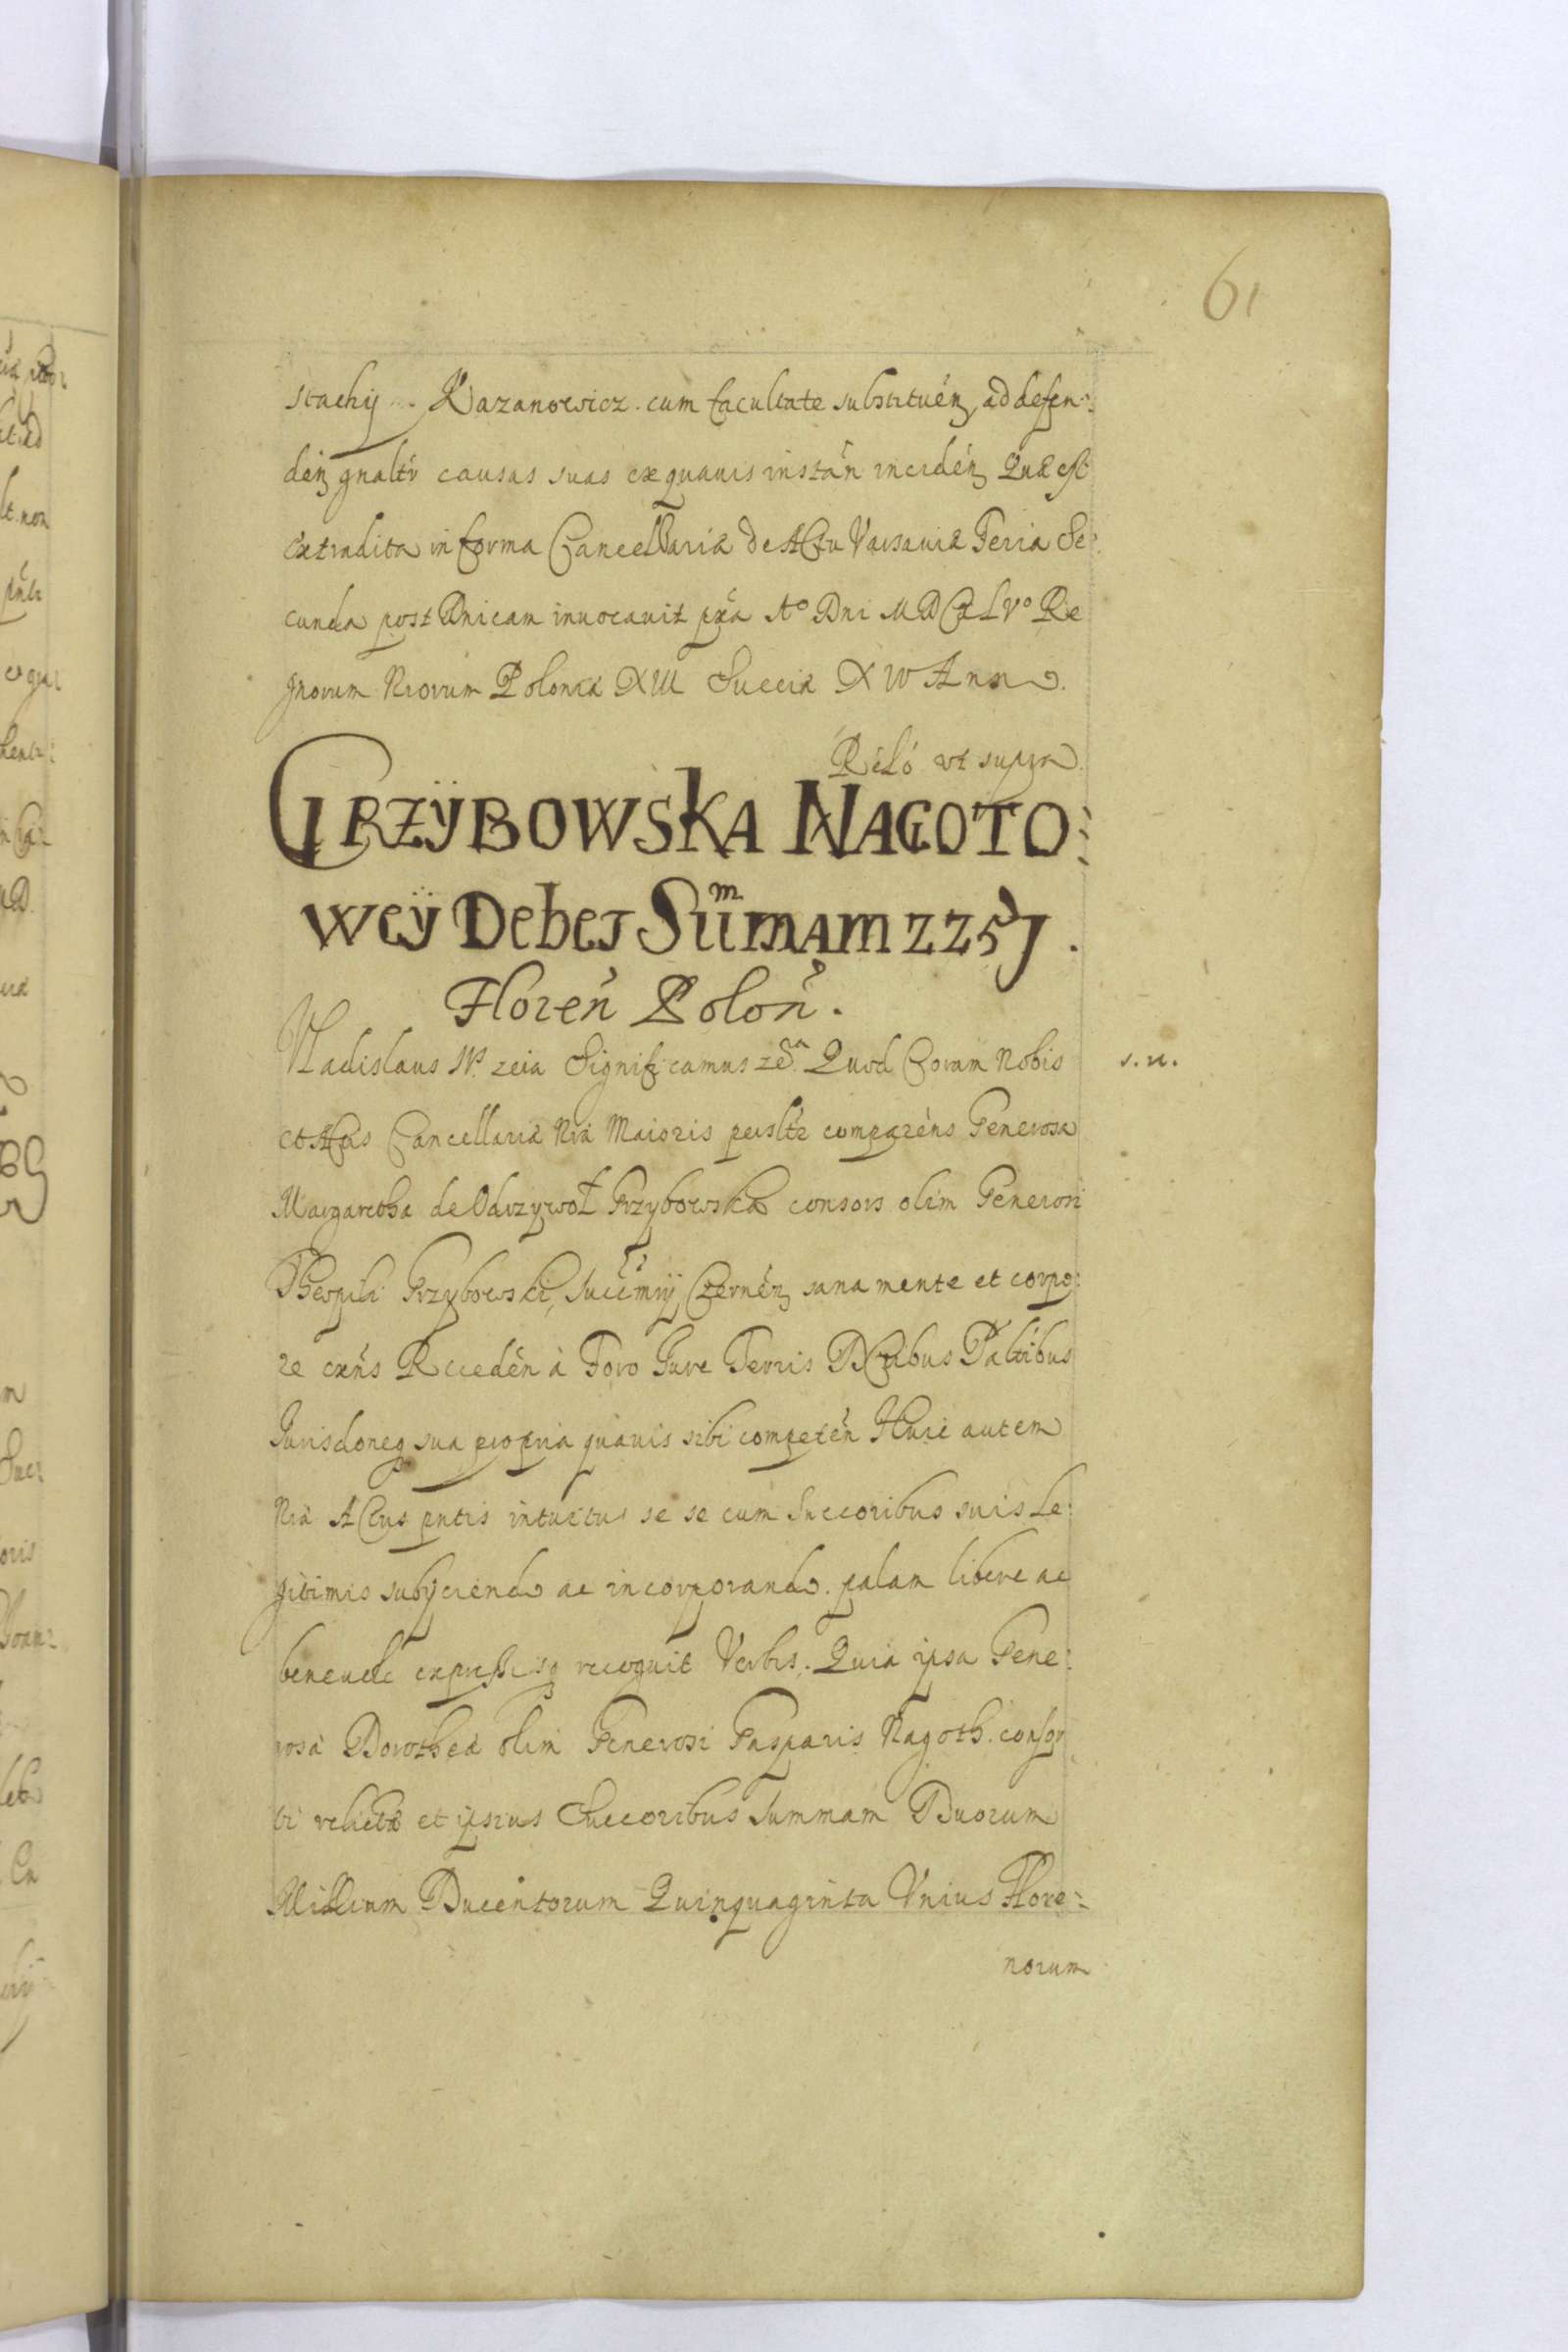 61
stachij Kazanowicz. cum facultate substituén, ad defen:
dén gnaltr causas suas ex quauis instán incidén Quæ est
extradita in forma Cancellariæ de Actu Varsauiæ Feria Se:
cunda post Dnicam inuocauit pxa Ao Dni MDCXLVo Re
gnorum Nrorum Poloniæ XIII Sueciæ XIV Anno.
Reló vt supra.
GRZŸBOWSKA NAGOTO:
weÿ Debet Sum̃mam 2251.
Floren̉ Polon̉.
Vladislaus IVs zeia Significamus Quod Coram Nobis
s. n.
et Actis Cancellariæ Nrǽ Maioris psltr comparéns Generosa
Margaretha de Odrzywoł Grzybowska consors olim Generosi
Grzybowski, Czernén, sana mente et corpo:
re exns Recedén à Foro Jure Terris Dctibus Paltibus
Jurisdoneq sua propria quauis sibi competén Huic autem
Nrǽ Actus pntis intuitus se se cum Succoribus suis Le:
gitimis subijciendo ac incorporando. palam libere ac
beneuole expressisq recognit Verbis. Quia ipsa Gene:
rosǽ Dorotheæ olim Generosi Gasparis Nagoth. consor
ti relictæ et ipsius Succoribus Summam Duorum
Millium Ducentorum Quinquaginta Vnius Flore:
norum